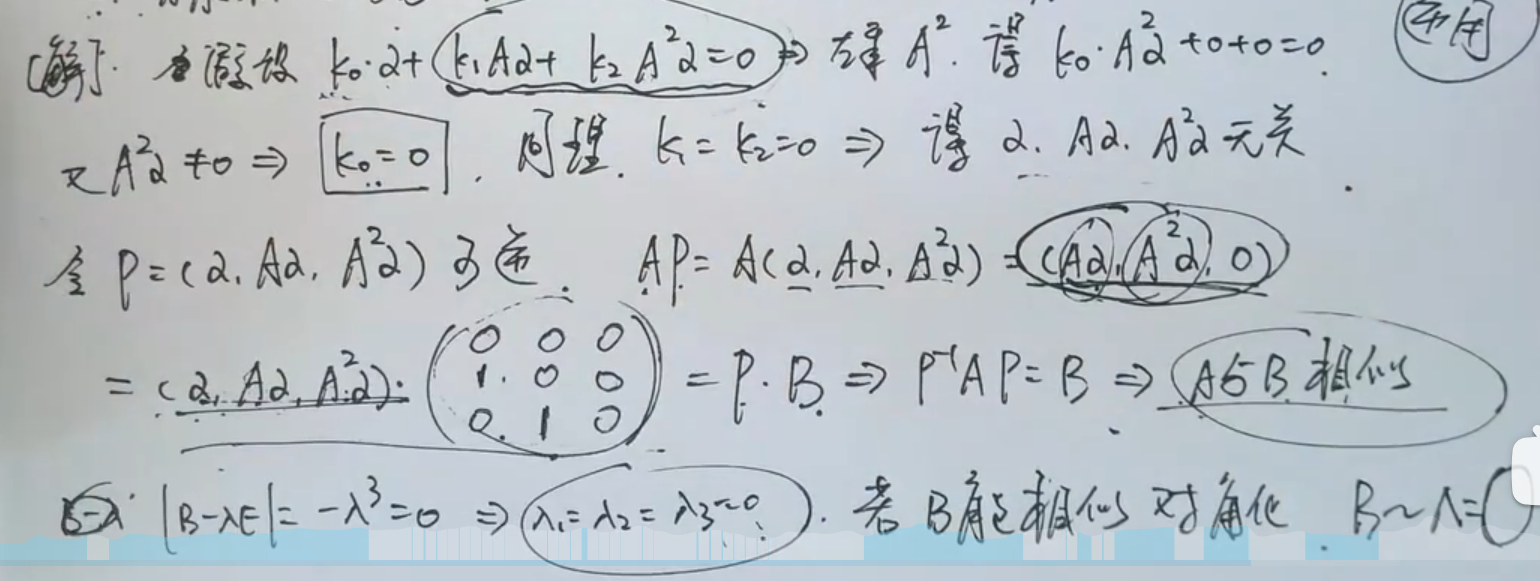 [解]. 假设 k₀·α+k₁Aα+ k₂A²α=0 ⇒ 左乘 A². 得 k₀·A²α+0+0=0.
又A²α≠0 ⇒ k₀=0 . 同理. k₁=k₂=0 ⇒ 得 α. Aα. A²α无关
令 P=(α, Aα, A²α) 可逆. AP=A(α, Aα, A²α)=(Aα, A²α, 0)
=(α, Aα, A²α)·(0 0 0
1 0 0
0 1 0) =P·B ⇒ P⁻¹AP=B ⇒ A与B相似
|B-λE|=-λ³=0 ⇒ λ₁=λ₂=λ₃=0. 若B能相似对角化 B~Λ=0